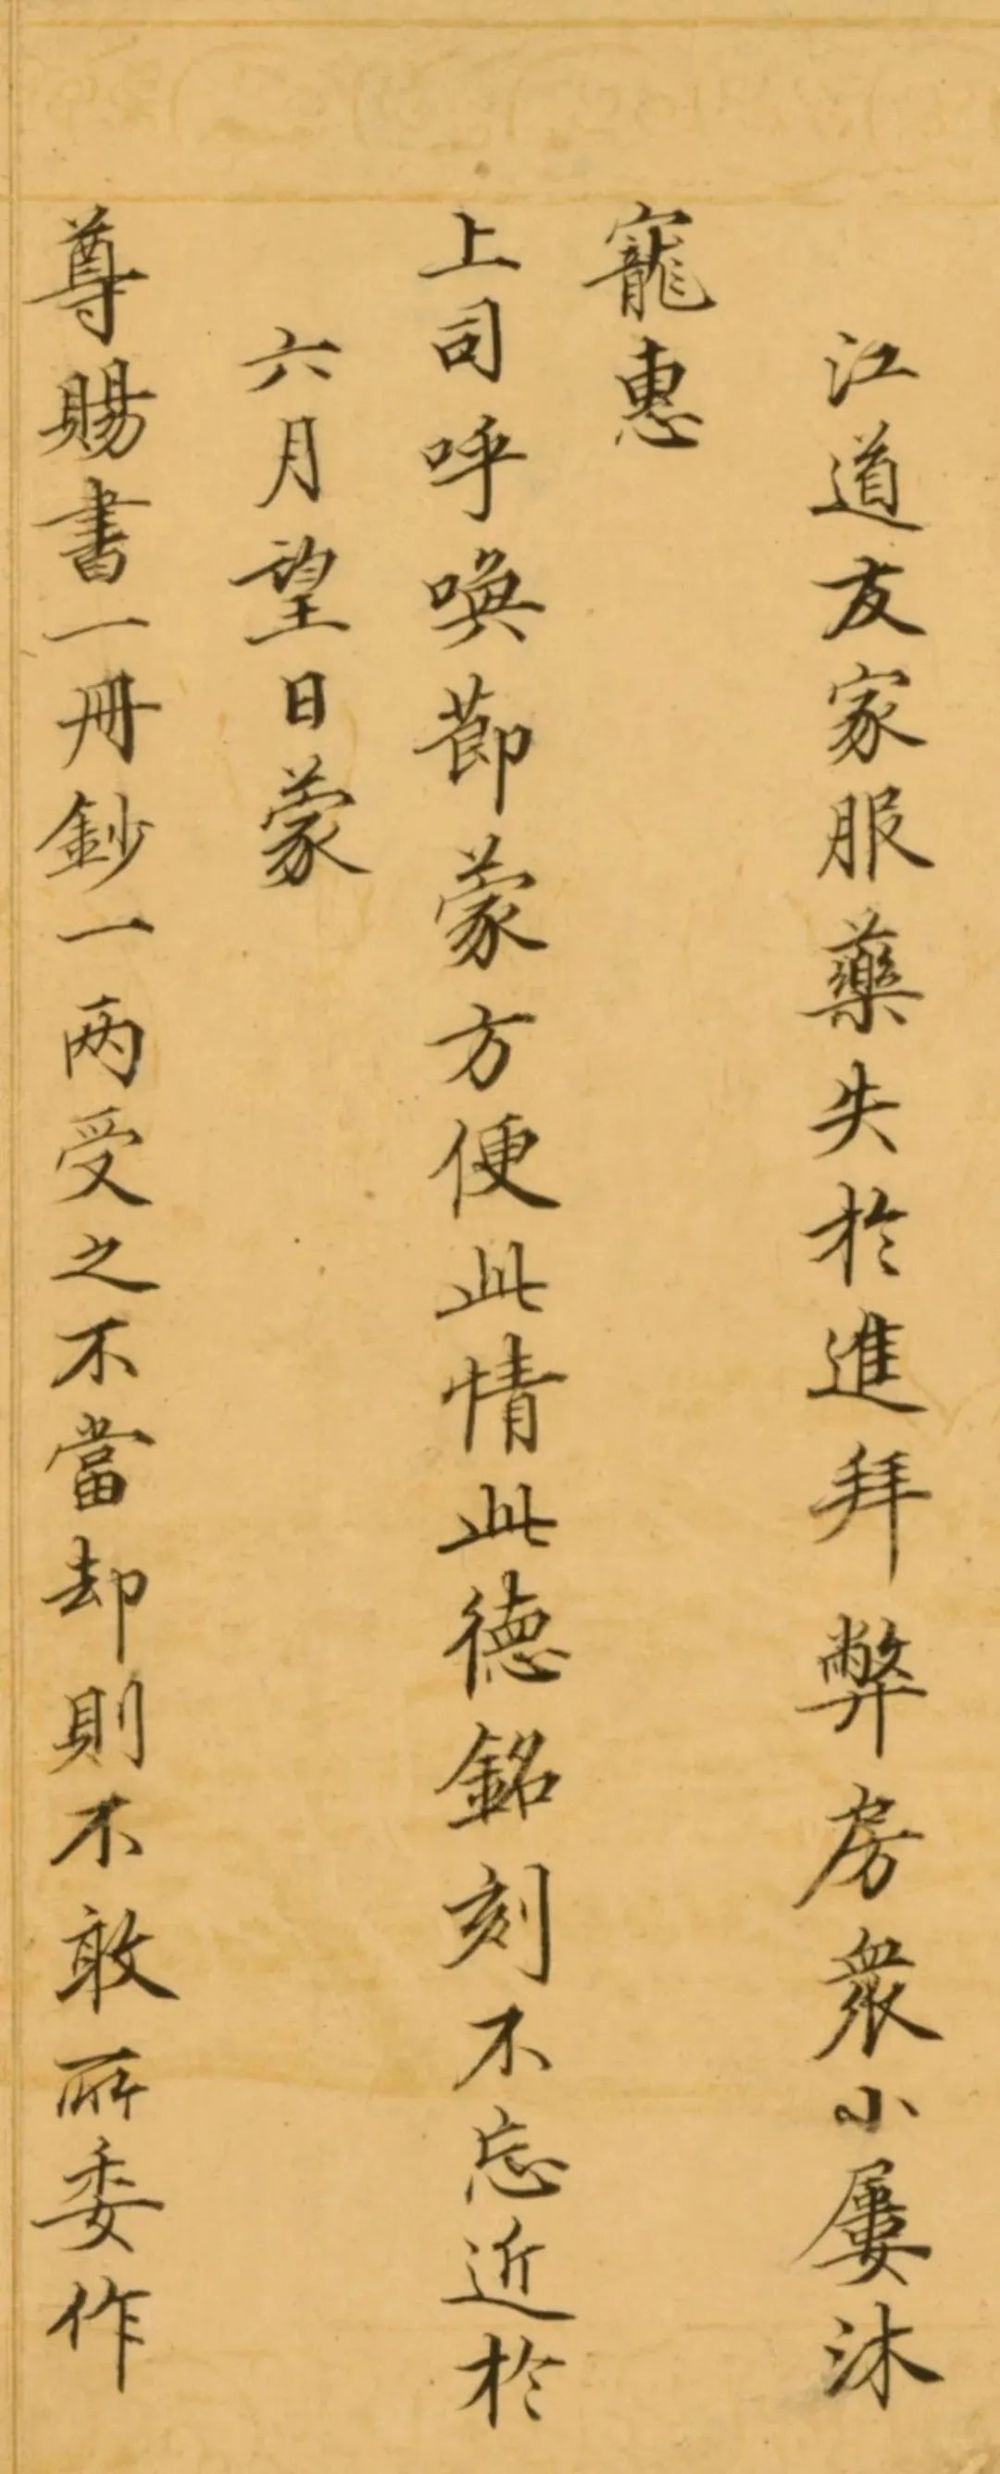 江道友家服藥失於進拜弊房衆小屢沐
寵惠
上司呼喚節蒙方便此情此德銘刻不忘近於
六月望日蒙
尊賜書一冊鈔一兩受之不當却則不敢所委作